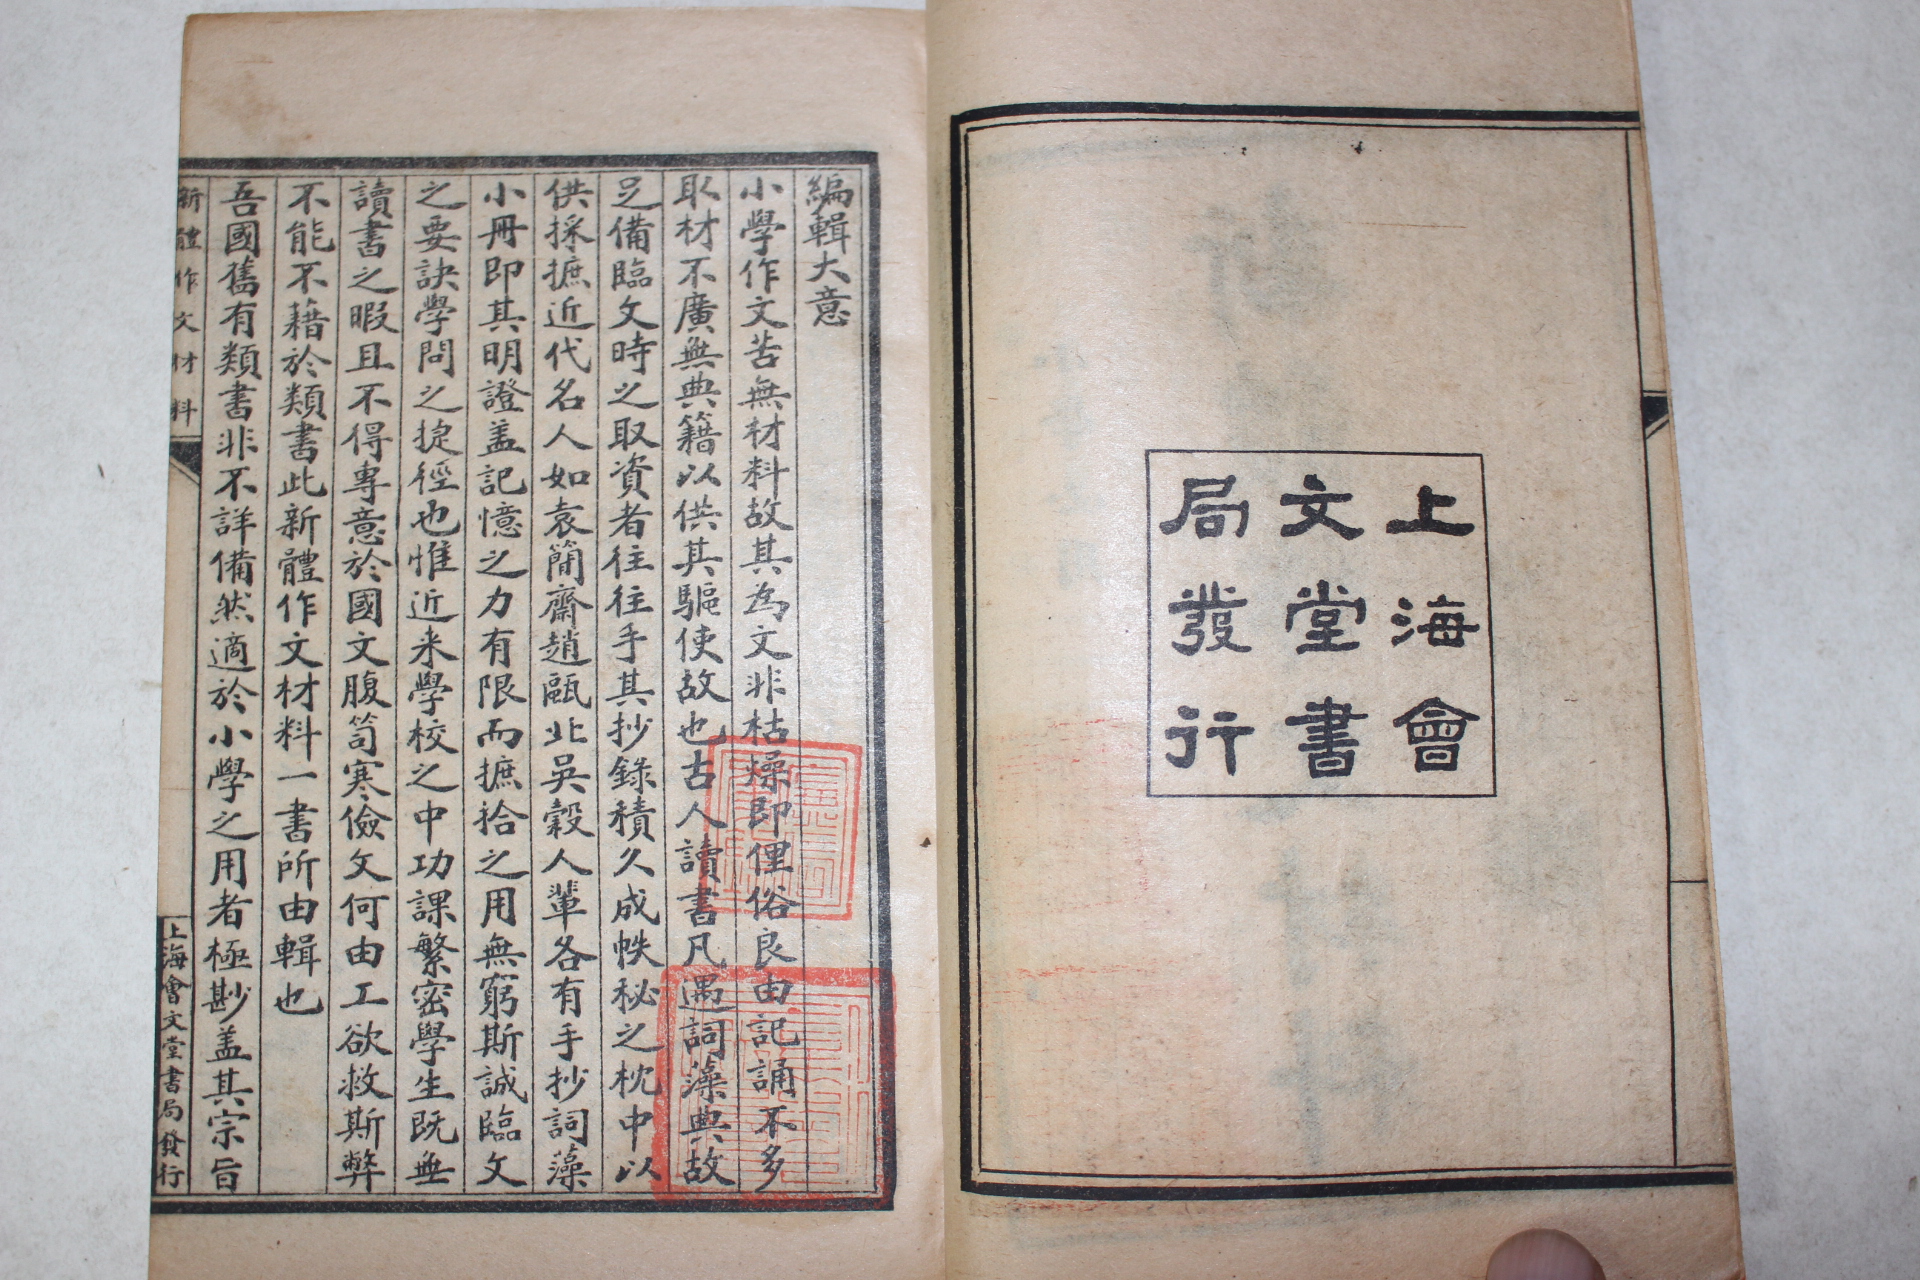 上海會
文堂書
局發行
編輯大意
小學作文苦無材料故其為文非枯燥即俚俗良由記誦不多
取材不廣無典籍以供其驅使故也古人讀書凡遇詞藻典故
足備臨文時之取資者往往手其抄錄積久成帙秘之枕中以
供採摭近代名人如袁簡齋趙甌北吳穀人輩各有手抄詞藻
小冊即其明證盖記憶之力有限而摭拾之用無窮斯誠臨文
之要訣學問之捷徑也惟近来學校之中功課繁密學生既無
讀書之暇且不得專意於國文腹笥寒儉文何由工欲救斯弊
不能不藉於類書此新體作文材料一書所由輯也
吾國舊有類書非不詳備然適於小學之用者極尠盖其宗旨
新體作文材料
上海會文堂書局發行